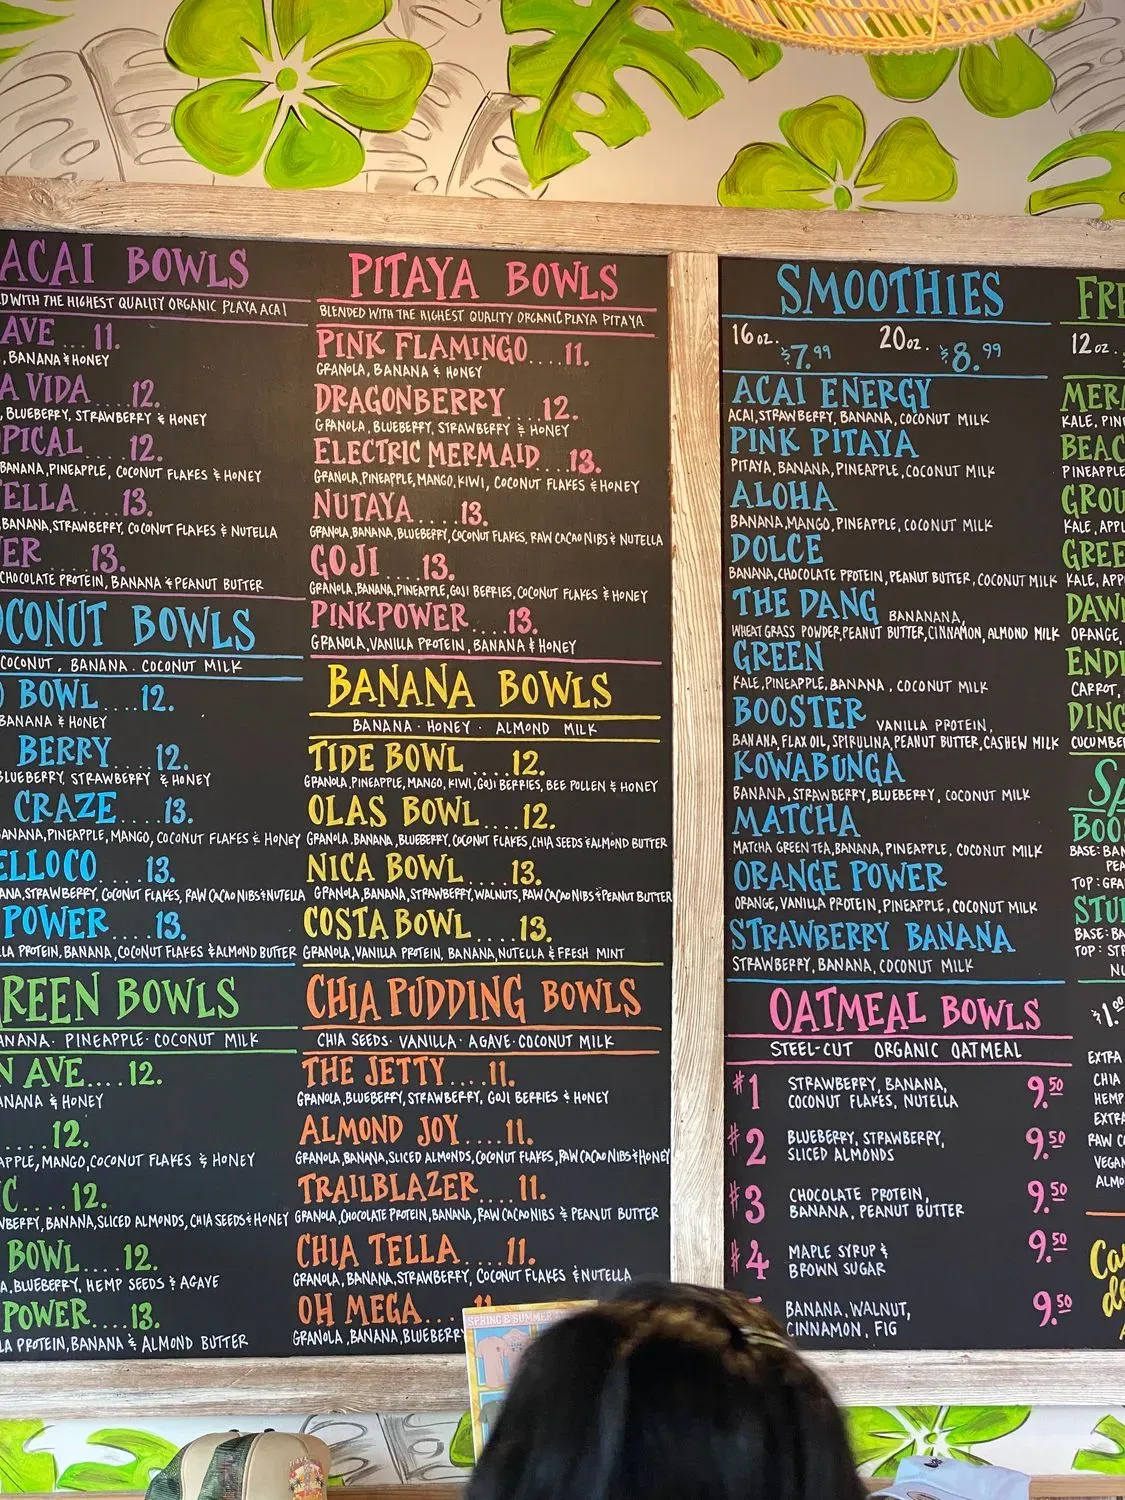 ACAI BOWLS
WITH THE HIGHEST QUALITY ORGANIC PLAYA ACAI
AVE .. 11.
, BANANA & HONEY
A VIDA .. 12.
, BLUEBERRY, STRAWBERRY & HONEY
PICAL ... 12.
BANANA, PINEAPPLE, COCONUT FLAKES & HONEY
ELLA ... 13.
BANANA, STRAWBERRY, COCONUT FLAKES & NUTELLA
ER .... 13.
CHOCOLATE PROTEIN, BANANA & PEANUT BUTTER
COCONUT BOWLS
COCONUT, BANANA. COCONUT MILK
BOWL....12.
BANANA & HONEY
BERRY....12.
BLUEBERRY, STRAWBERRY & HONEY
CRAZE....13.
BANANA, PINEAPPLE, MANGO, COCONUT FLAKES & HONEY
ELLOCO....13.
STRAWBERRY, COCONUT FLAKES, RAW CACAO NIBS & NUTELLA
POWER....13.
PROTEIN, BANANA, COCONUT FLAKES & ALMOND BUTTER
GREEN BOWLS
BANANA · PINEAPPLE · COCONUT MILK
AVE....12.
BANANA & HONEY
....12.
MANGO, COCONUT FLAKES & HONEY
C....12.
BANANA, SLICED ALMONDS, CHIA SEEDS & HONEY
BOWL....12.
BLUEBERRY, HEMP SEEDS & AGAVE
POWER....13.
PROTEIN, BANANA & ALMOND BUTTER
PITAYA BOWLS
BLENDED WITH THE HIGHEST QUALITY ORGANIC PLAYA PITAYA
PINK FLAMINGO....11.
GRANOLA, BANANA & HONEY
DRAGONBERRY....12.
GRANOLA, BLUEBERRY, STRAWBERRY & HONEY
ELECTRIC MERMAID...13.
GRANOLA, PINEAPPLE, MANGO, KIWI, COCONUT FLAKES & HONEY
NUTAYA....13.
GRANOLA, BANANA, BLUEBERRY, COCONUT FLAKES, RAW CACAO NIBS & NUTELLA
GOJI....13.
GRANOLA, BANANA, PINEAPPLE, GOJI BERRIES, COCONUT FLAKES & HONEY
PINK POWER...13.
GRANOLA, VANILLA PROTEIN, BANANA & HONEY
BANANA BOWLS
BANANA · HONEY · ALMOND MILK
TIDE BOWL....12.
GRANOLA, PINEAPPLE, MANGO, KIWI, GOJI BERRIES, BEE POLLEN & HONEY
OLAS BOWL....12.
GRANOLA, BANANA, BLUEBERRY, COCONUT FLAKES, CHIA SEEDS & ALMOND BUTTER
NICA BOWL....13.
GRANOLA, BANANA, STRAWBERRY, WALNUTS, RAW CACAO NIBS & PEANUT BUTTER
COSTA BOWL....13.
GRANOLA, VANILLA PROTEIN, BANANA, NUTELLA & FRESH MINT
CHIA PUDDING BOWLS
CHIA SEEDS · VANILLA · AGAVE · COCONUT MILK
THE JETTY....11.
GRANOLA, BLUEBERRY, STRAWBERRY, GOJI BERRIES & HONEY
ALMOND JOY....11.
GRANOLA, BANANA, SLICED ALMONDS, COCONUT FLAKES, RAW CACAO NIBS & HONEY
TRAILBLAZER....11.
GRANOLA, CHOCOLATE PROTEIN, BANANA, RAW CACAO NIBS & PEANUT BUTTER
CHIA TELLA....11.
GRANOLA, BANANA, STRAWBERRY, COCONUT FLAKES & NUTELLA
OH MEGA... 11
GRANOLA, BANANA, BLUEBERRY
SPRING & SUMMER
SMOOTHIES
16 oz. $7.99 20 oz. $8.99
ACAI ENERGY
ACAI, STRAWBERRY, BANANA, COCONUT MILK
PINK PITAYA
PITAYA, BANANA, PINEAPPLE, COCONUT MILK
ALOHA
BANANA, MANGO, PINEAPPLE, COCONUT MILK
DOLCE
BANANA, CHOCOLATE PROTEIN, PEANUT BUTTER, COCONUT MILK
THE DANG BANANANA,
WHEAT GRASS POWDER, PEANUT BUTTER, CINNAMON, ALMOND MILK
GREEN
KALE, PINEAPPLE, BANANA, COCONUT MILK
BOOSTER VANILLA PROTEIN,
BANANA, FLAX OIL, SPIRULINA, PEANUT BUTTER, CASHEW MILK
KOWABUNGA
BANANA, STRAWBERRY, BLUEBERRY, COCONUT MILK
MATCHA
MATCHA GREEN TEA, BANANA, PINEAPPLE, COCONUT MILK
ORANGE POWER
ORANGE, VANILLA PROTEIN, PINEAPPLE, COCONUT MILK
STRAWBERRY BANANA
STRAWBERRY, BANANA, COCONUT MILK
OATMEAL BOWLS
STEEL-CUT ORGANIC OATMEAL
#1 STRAWBERRY, BANANA, 9.50
COCONUT FLAKES, NUTELLA
#2 BLUEBERRY, STRAWBERRY, 9.50
SLICED ALMONDS
#3 CHOCOLATE PROTEIN, 9.50
BANANA, PEANUT BUTTER
#4 MAPLE SYRUP & 9.50
BROWN SUGAR
BANANA, WALNUT, 9.50
CINNAMON, FIG
FRE
12 oz.
MERM
KALE, PIN
BEAC
PINEAPPLE
GROU
KALE, APPL
GREE
KALE, APP
DAW
ORANGE,
ENDL
CARROT,
DING
CUCUMBE
Sp
BOO
BASE: BAN
PEA
TOP: GRA
STU
BASE: BA
TOP: STR
NU
$1.00
EXTRA
CHIA
HEMP
EXTRA
RAW C
VEGAN
ALMO
Ca
de